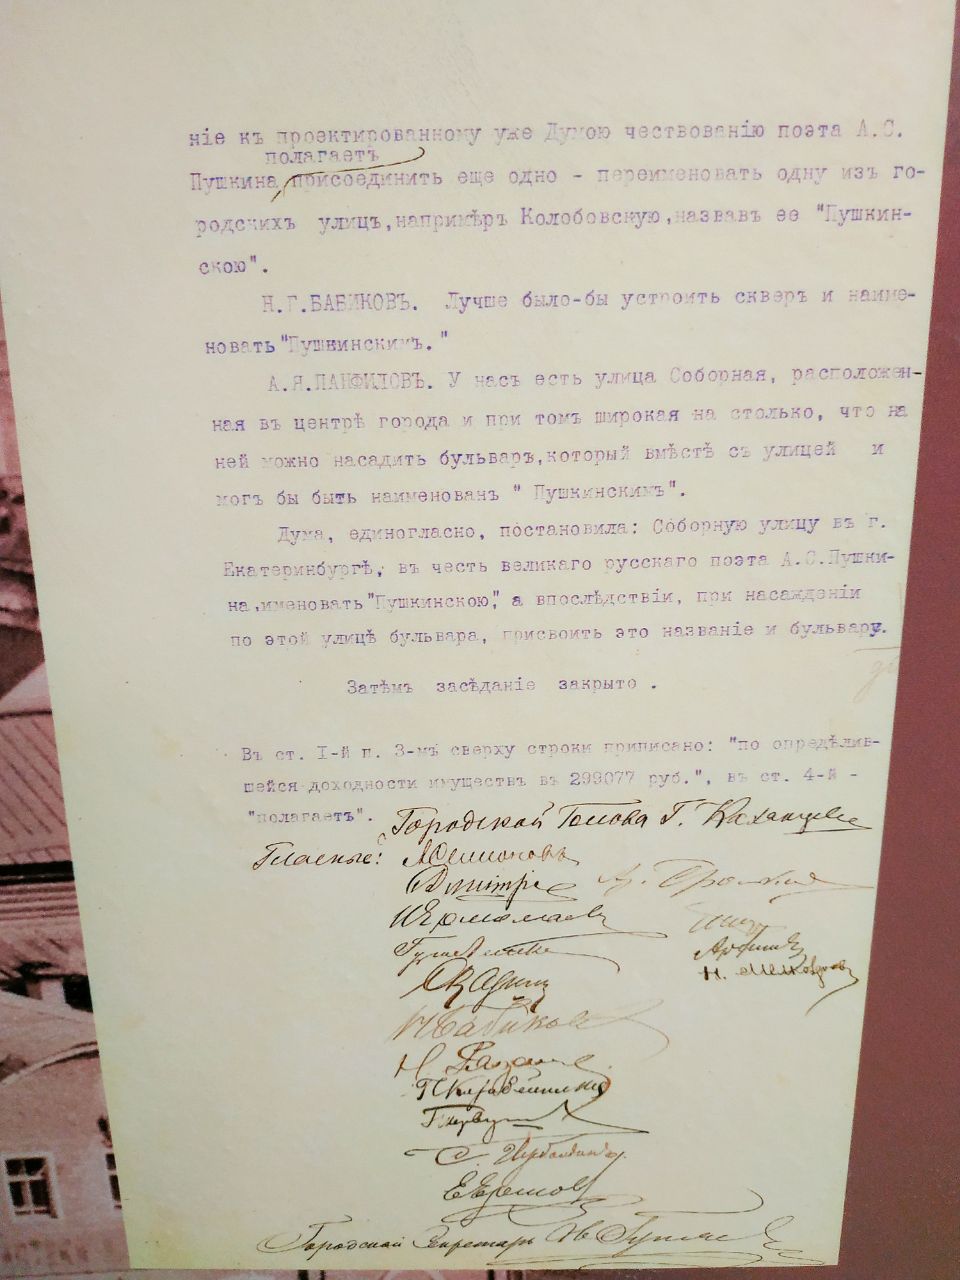 ніе къ проектированному уже Думою чествованію поэта А.С.
полагаетъ
Пушкина, присоединить еще одно - переименовать одну изъ го-
родскихъ улицъ, напримѣръ Колобовскую, назвавъ ее "Пушкин-
скою".
Н.Г.БАБИКОВЪ. Лучше было-бы устроить скверъ и наиме-
новать "Пушкинскимъ."
А.Я.ПАНФИЛОВЪ. У насъ есть улица Соборная, расположен-
ная въ центрѣ города и при томъ широкая на столько, что на
ней можно насадить бульваръ, который вмѣстѣ съ улицей и
могъ бы быть наименованъ " Пушкинскимъ".
Дума, единогласно, постановила: Соборную улицу въ г.
Екатеринбургѣ, въ честь великаго русскаго поэта А.С.Пушки-
на, именовать "Пушкинскою", а впослѣдствіи, при насажденіи
по этой улицѣ бульвара, присвоить это названіе и бульвару.
Затѣмъ засѣданіе закрыто .
Въ ст. I-й п. 3-мъ сверху строки приписано: "по опредѣлив-
шейся доходности имуществъ въ 299077 руб.", въ ст. 4-й -
"полагаетъ".
Городской Голова Г. Казанцевъ
Гласные:
И Ермолаевъ
Н Бабиковъ
Городской Секретарь